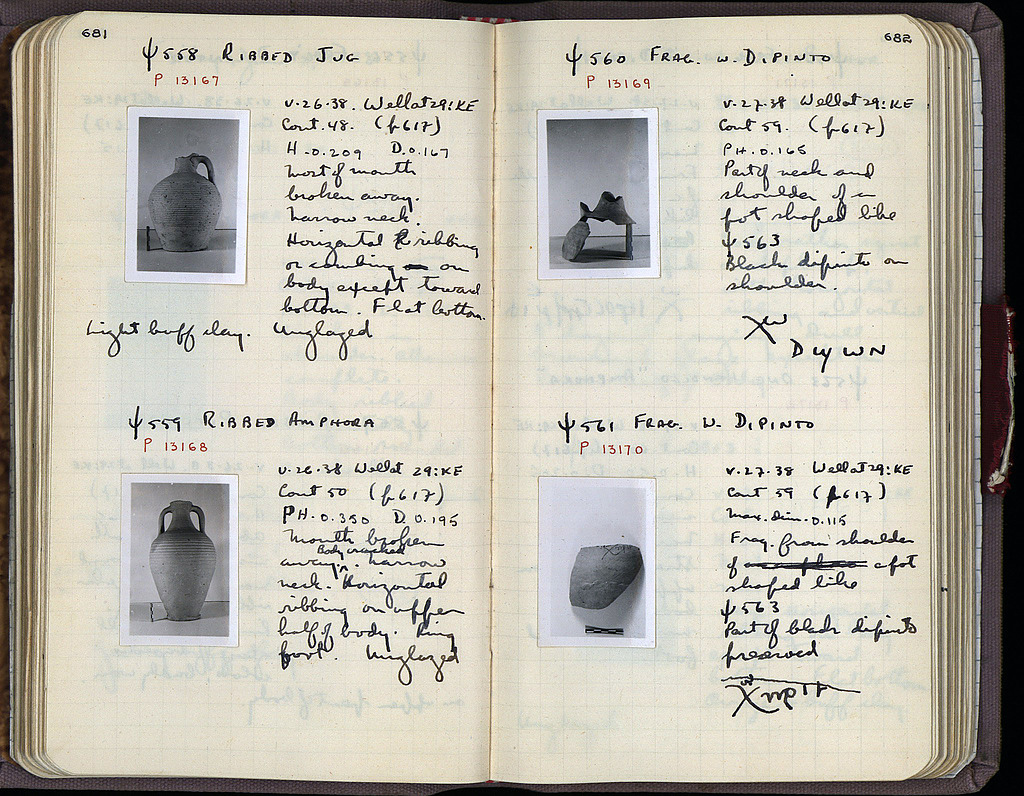 681
Ψ558 RIBBED JUG
P 13167
V.26.38. Well at 29:KE
Cont. 48. (p617)
H-0.209 D.0.167
Most of mouth
broken away.
Narrow neck.
Horizontal ribbing
or combing on
body except toward
bottom. Flat bottom.
Light buff clay. Unglazed
Ψ559 RIBBED AMPHORA
P 13168
V.26.38 Well at 29:KE
Cont 50 (p617)
PH.0.350 D.0.195
Mouth broken
Body cracked
away. Narrow
neck. Horizontal
ribbing on upper
half of body. Ring
foot. Unglazed
682
Ψ560 FRAG. W. DIPINTO
P 13169
V.27.38 Well at 29:KE
Cont 59. (p617)
PH.0.165
Part of neck and
shoulder of a
pot shaped like
Ψ563
Black dipinto on
shoulder.
Ψ561 FRAG. W. DIPINTO
P 13170
V.27.38 Well at 29:KE
Cont 59 (p617)
Max. dim. 0.115
Frag. from shoulder
of a pot
shaped like
Ψ563
Part of black dipinto
preserved